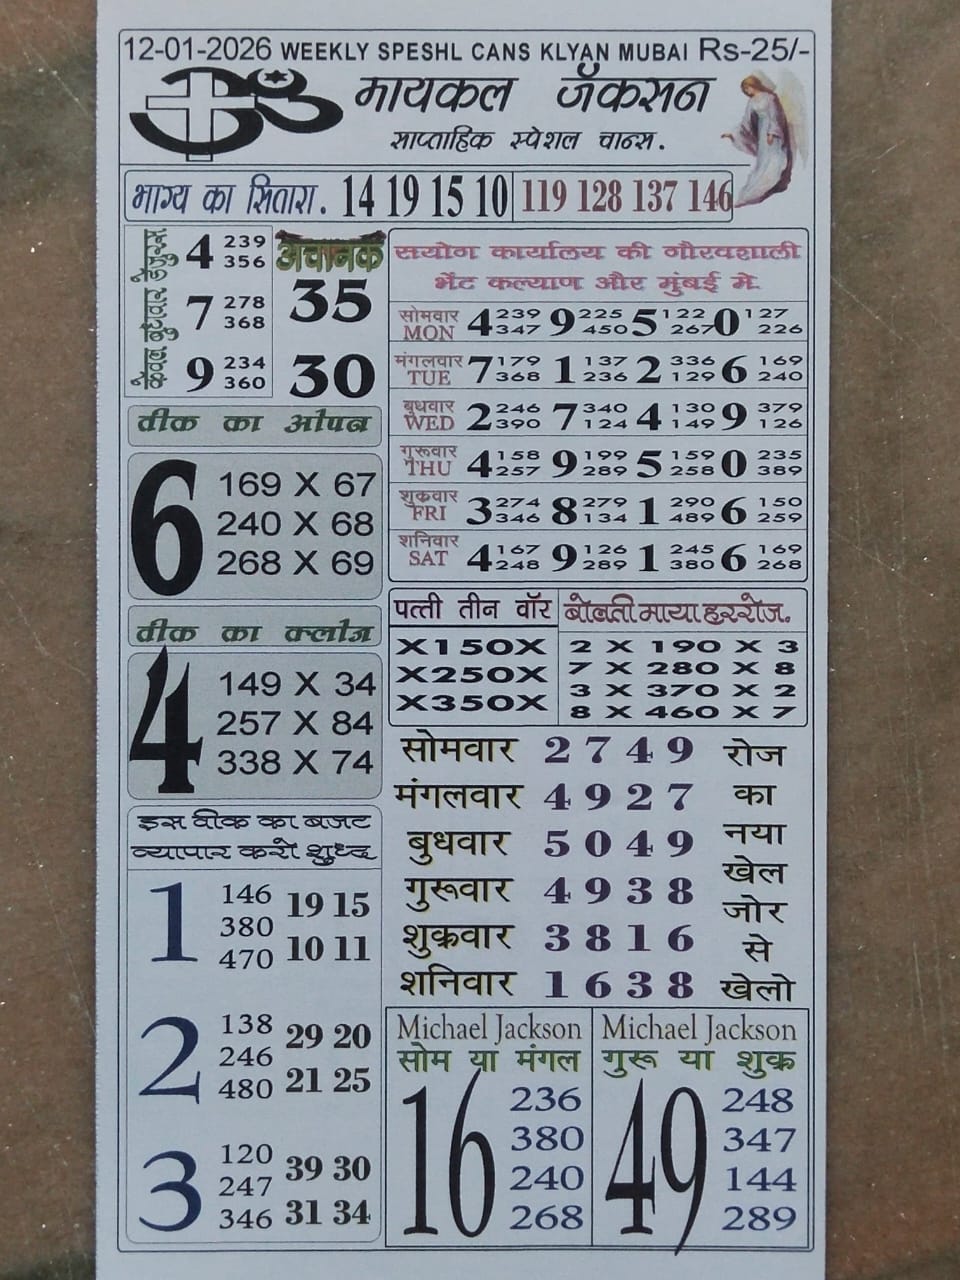 12-01-2026 WEEKLY SPESHL CANS KLYAN MUBAI Rs-25/-
ॐ मायकल जॅकसन
साप्ताहिक स्पेशल चान्स.
भाग्य का सितारा. 14 19 15 10 119 128 137 146
केवल बुधवार हैगुरुस
4 239 356
7 278 368
9 234 360
अचानक
35
30
सयोग कार्यालय की गौरवशाली
भेंट कल्याण और मुंबई मे.
सोमवार MON 4 239 347 9 225 450 5 122 267 0 127 226
मंगलवार TUE 7 179 368 1 137 236 2 336 129 6 169 240
बुधवार WED 2 246 390 7 340 124 4 130 149 9 379 126
गुरूवार THU 4 158 257 9 199 289 5 159 258 0 235 389
शुक्रवार FRI 3 274 346 8 279 134 1 290 489 6 150 259
शनिवार SAT 4 167 248 9 126 289 1 245 380 6 169 268
वीक का ओपन
6
169 X 67
240 X 68
268 X 69
वीक का क्लोज
4
149 X 34
257 X 84
338 X 74
पत्ती तीन वॉर
X150X
X250X
X350X
बोलती माया हररोज.
2 X 190 X 3
7 X 280 X 8
3 X 370 X 2
8 X 460 X 7
इस वीक का बजट
व्यापार करो शुध्द
1 146 380 470 19 15 10 11
2 138 246 480 29 20 21 25
3 120 247 346 39 30 31 34
सोमवार 2 7 4 9
मंगलवार 4 9 2 7
बुधवार 5 0 4 9
गुरूवार 4 9 3 8
शुक्रवार 3 8 1 6
शनिवार 1 6 3 8
रोज
का
नया
खेल
जोर
से
खेलो
Michael Jackson
सोम या मंगल
16
236
380
240
268
Michael Jackson
गुरू या शुक्र
49
248
347
144
289